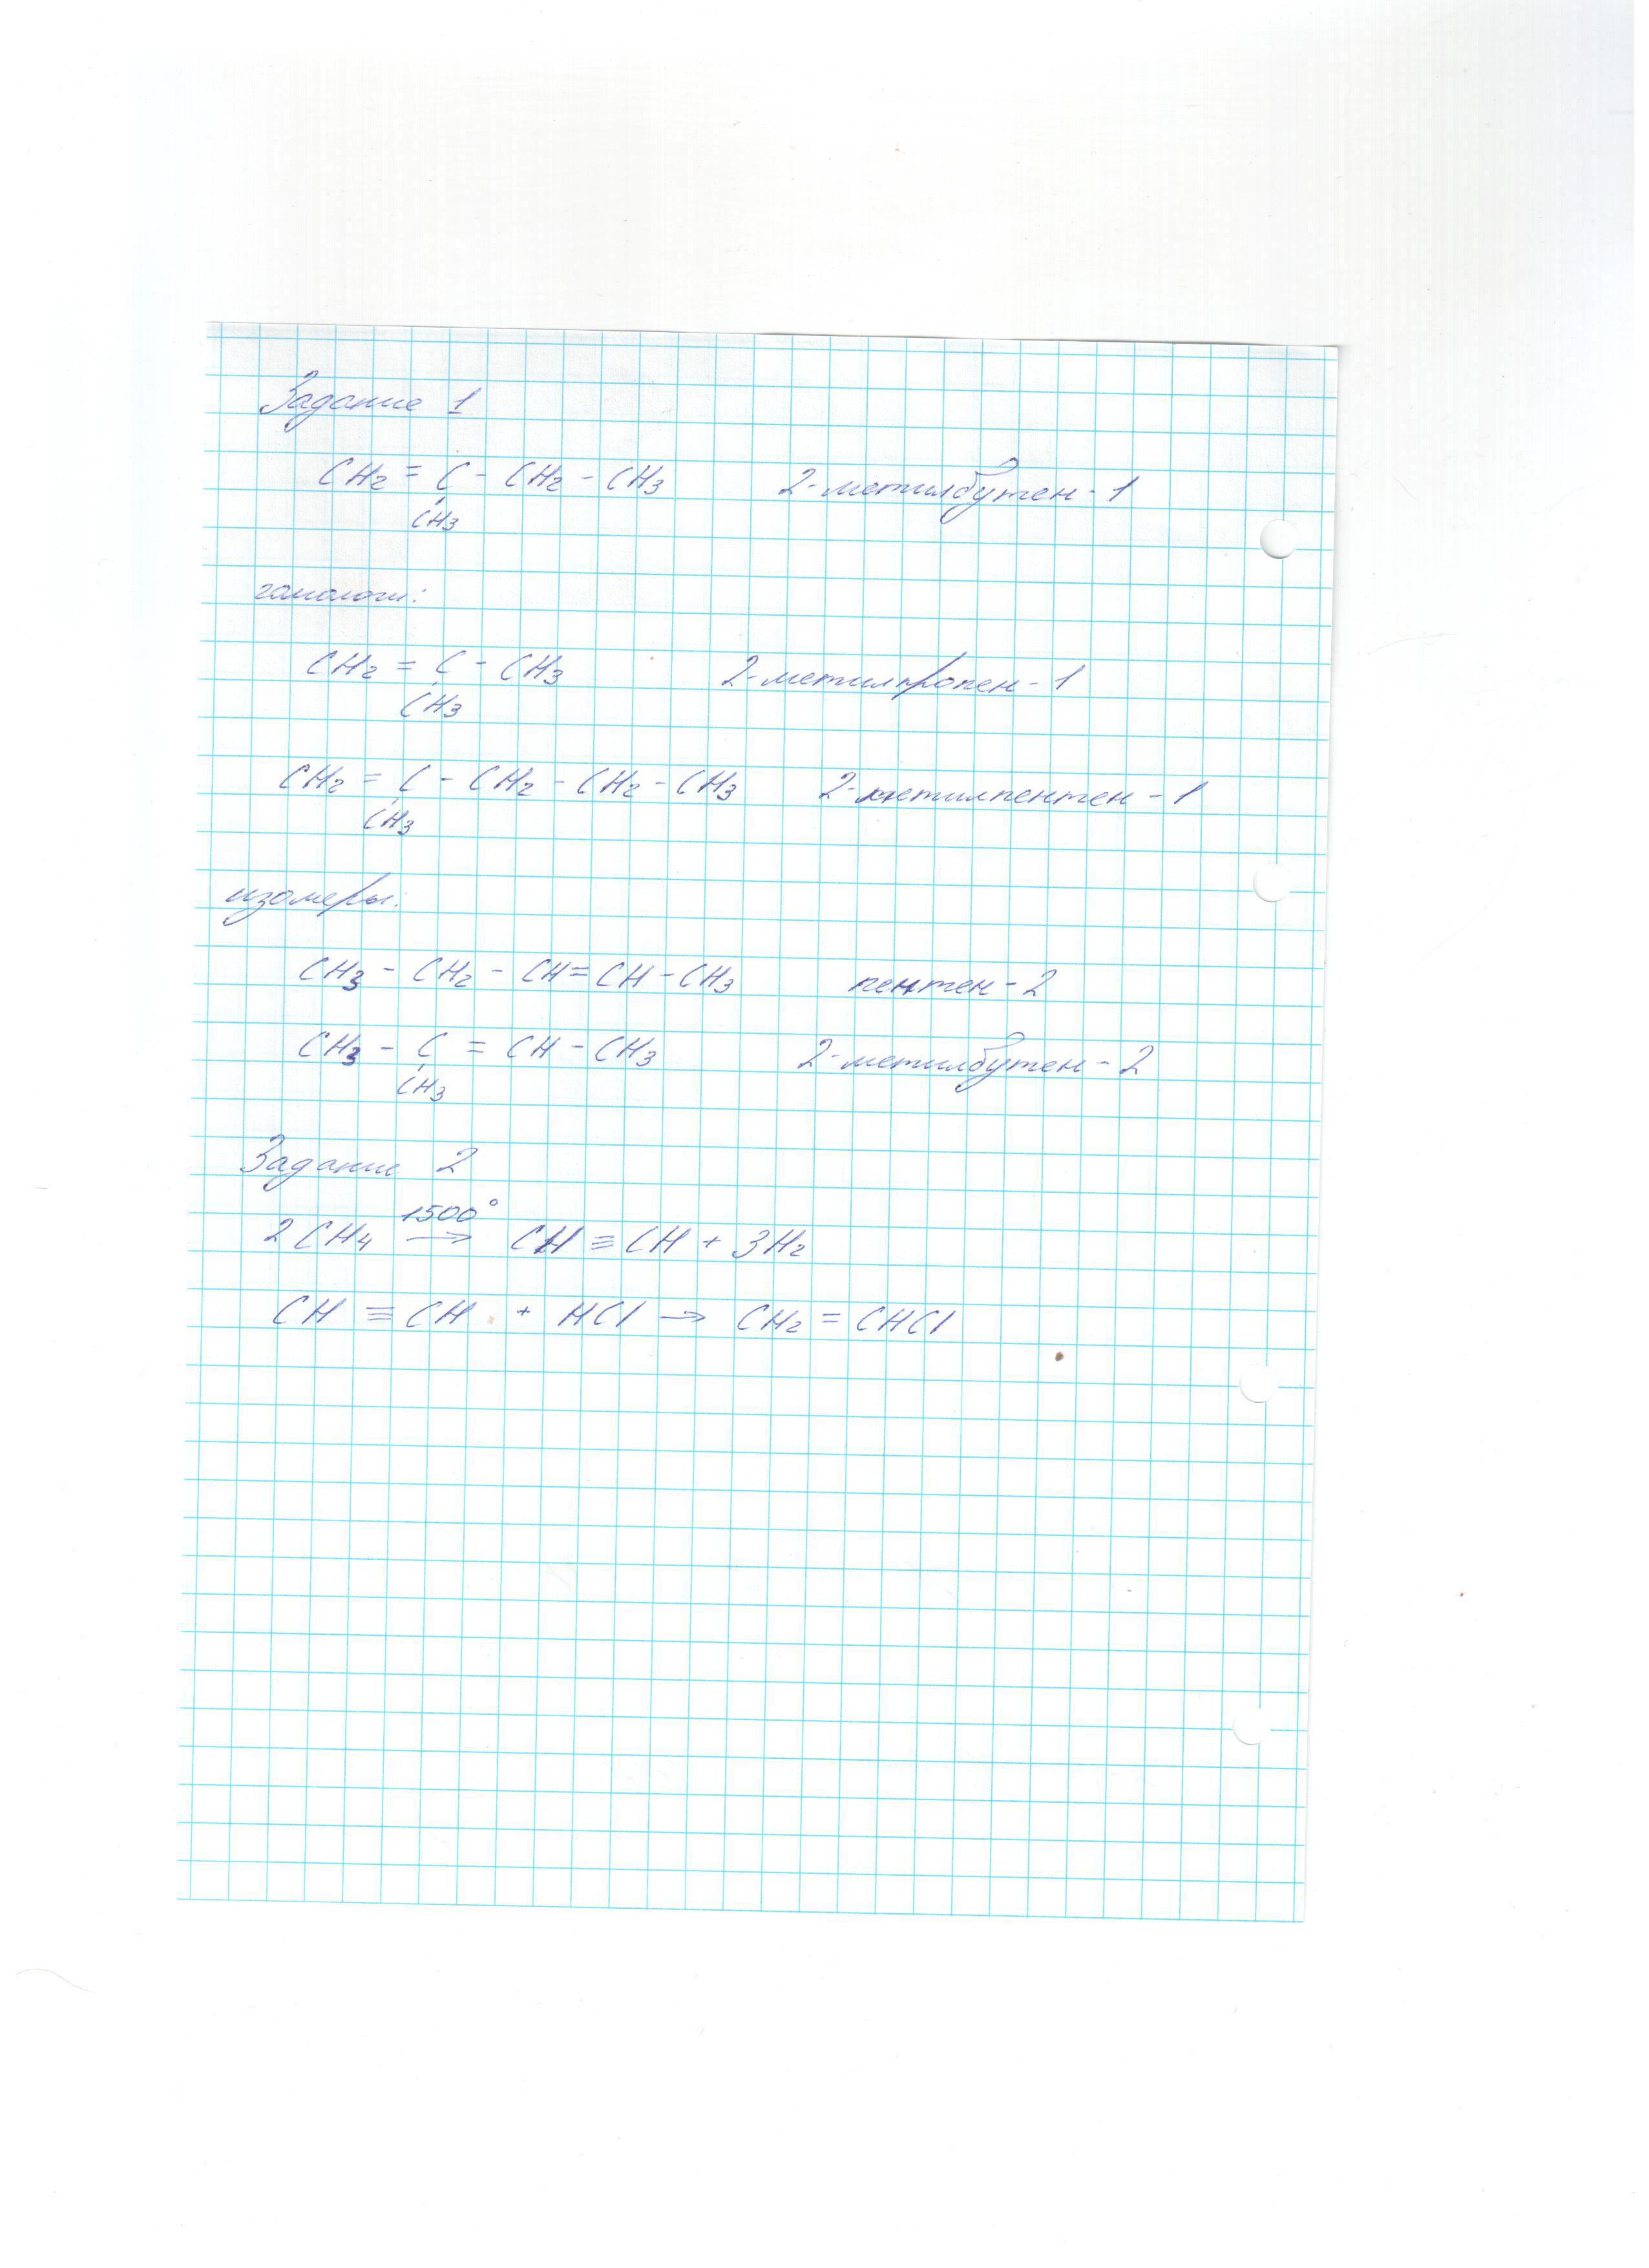 Задание 1
CH2 = C - CH2 - CH3 2-метилбутен-1
CH3
гомологи:
CH2 = C - CH3 2-метилпропен-1
CH3
CH2 = C - CH2 - CH2 - CH3 2-метилпентен-1
CH3
изомеры:
CH3 - CH2 - CH = CH - CH3 пентен-2
CH3 - C = CH - CH3 2-метилбутен-2
CH3
Задание 2
1500°
2CH4 → CH ≡ CH + 3H2
CH ≡ CH + HCl → CH2 = CHCl